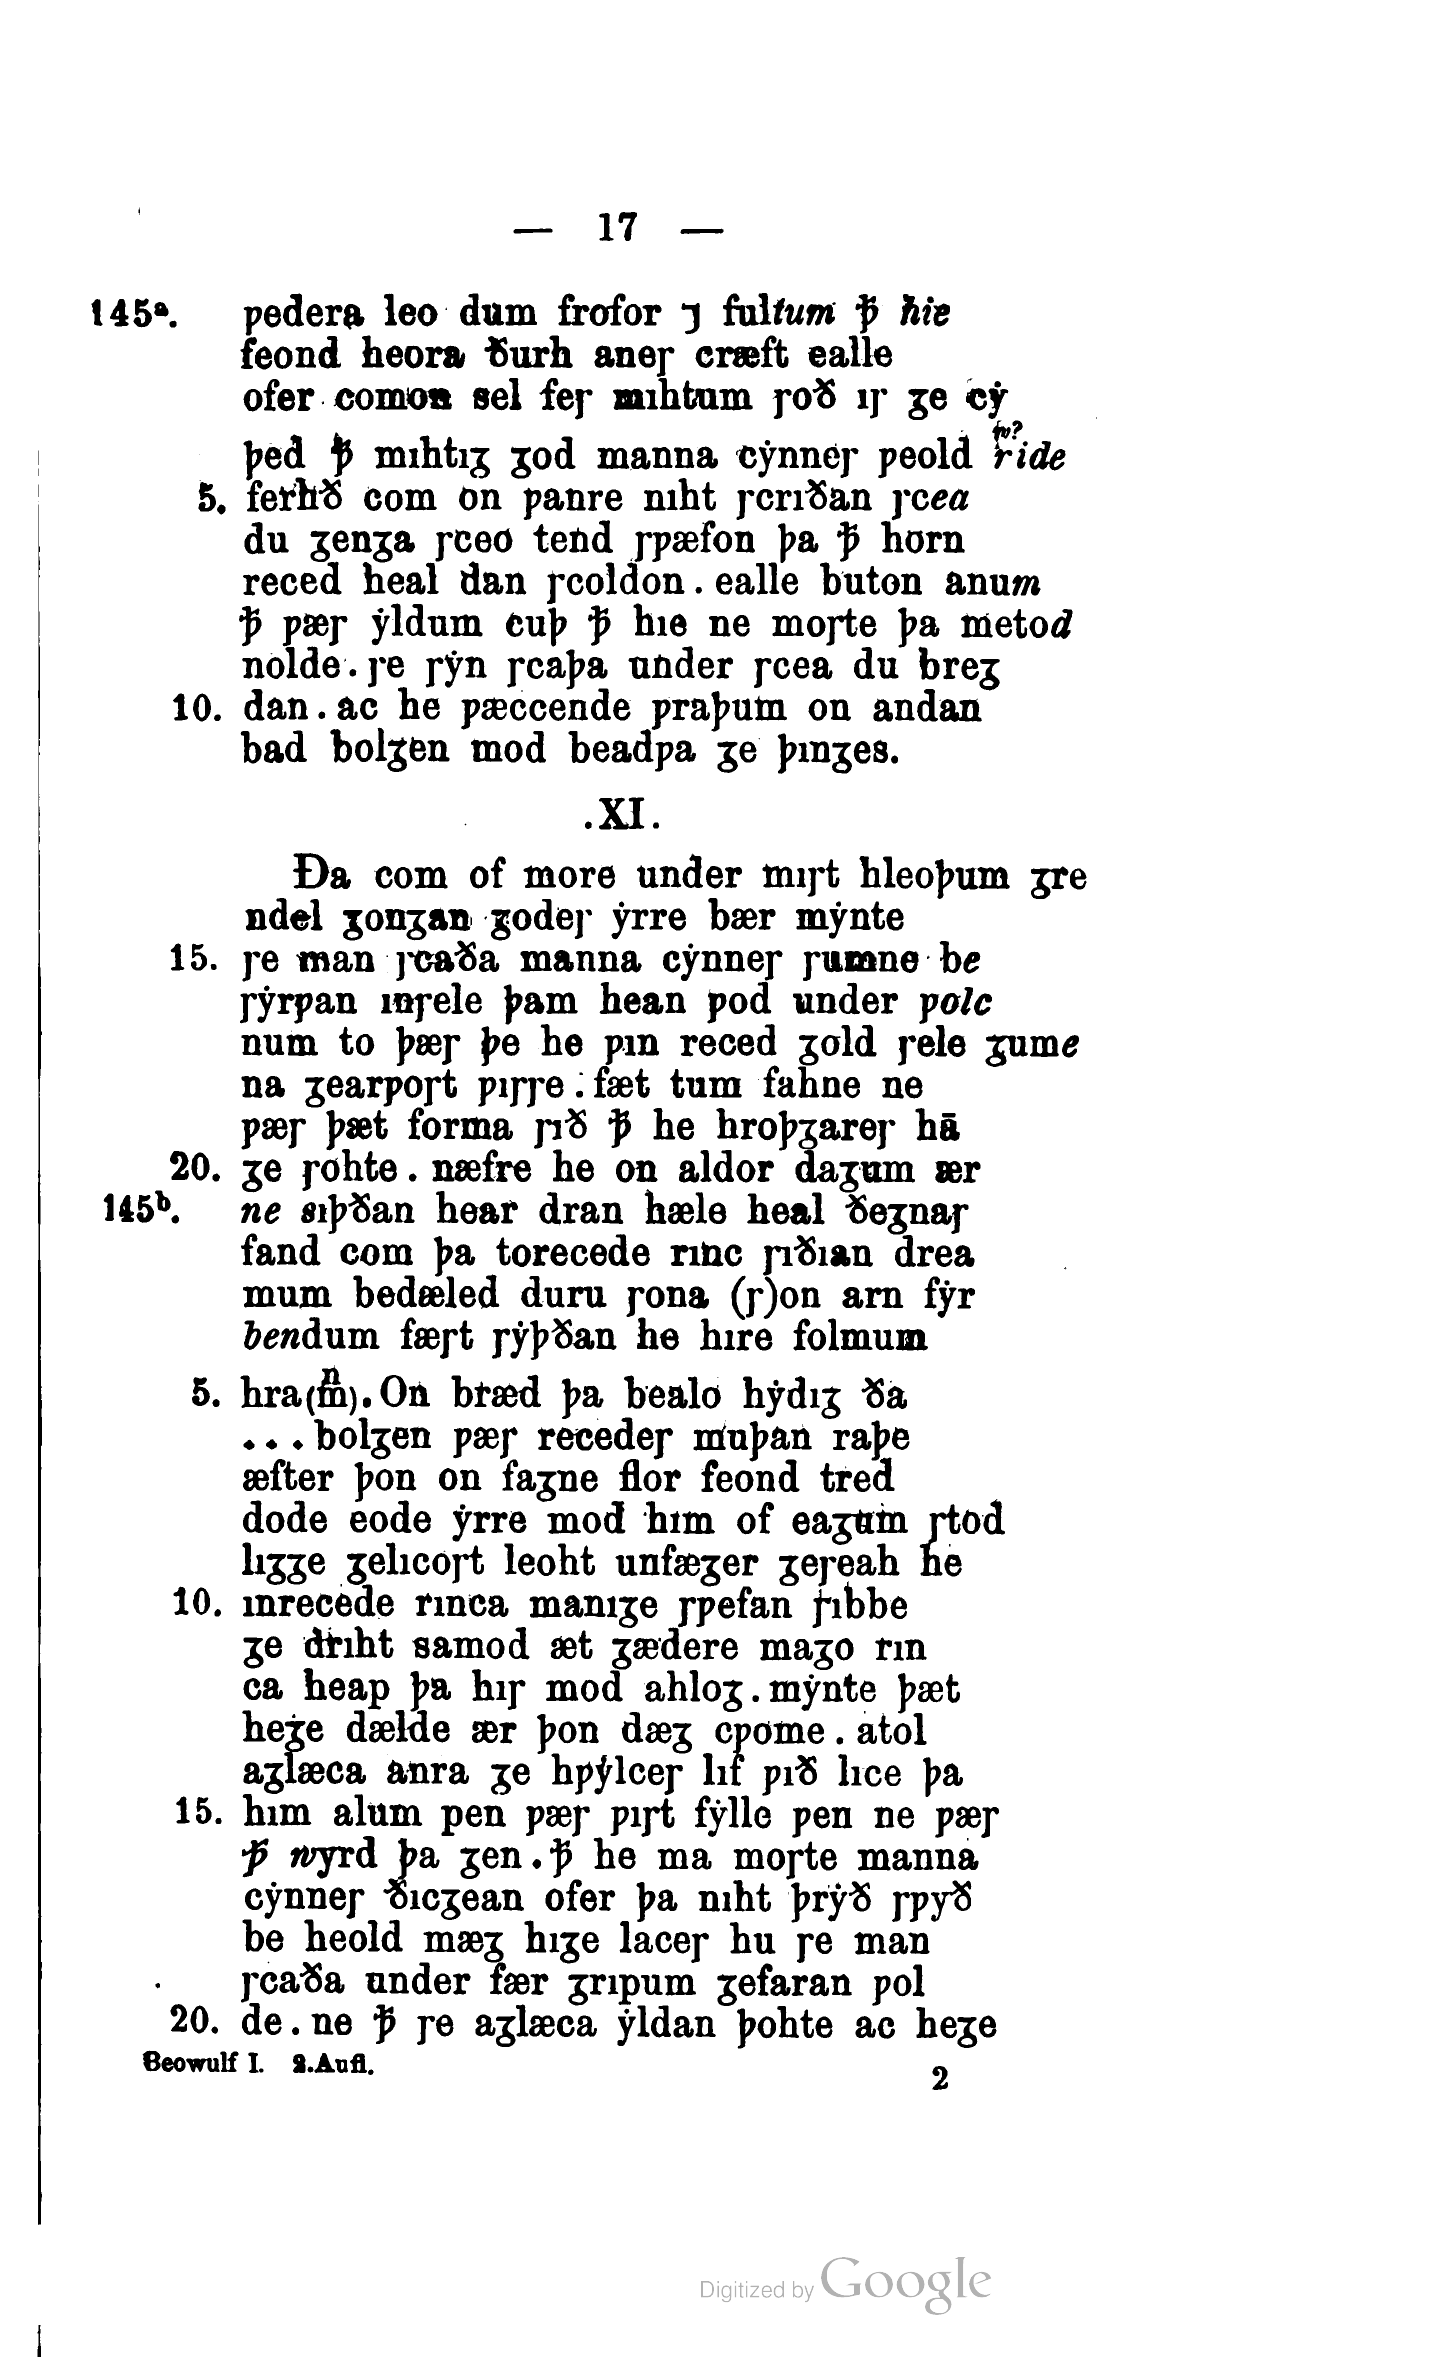 — 17 —
145ª. ƿedera leo dum frofor ⁊ fultum ꝥ hie
feond heora ðurh aneſ cræft ealle
ofer comon sel feſ mıhtum ſoð ıſ ᵹe cẏ
þed ꝥ mıhtıᵹ ᵹod manna cẏnneſ ƿeold w? ride
5. ferhð com on ƿanre nıht ſcrıðan ſcea
du ᵹenᵹa ſceo tend ſƿæfon þa ꝥ horn
reced heal dan ſcoldon . ealle buton anum
ꝥ ƿæſ ẏldum cuþ ꝥ hıe ne moſte þa metod
nolde . ſe ſẏn ſcaþa under ſcea du breᵹ
10. dan . ac he ƿæccende ƿraþum on andan
bad bolᵹen mod beadƿa ᵹe þınᵹes.
.XI.
Ða com of more under mıſt hleoþum ᵹre
ndel ᵹonᵹan ᵹodeſ ẏrre bær mẏnte
15. ſe man ſcaða manna cẏnneſ ſumne be
ſẏrƿan ınſele þam hean ƿod under ƿolc
num to þæſ þe he ƿın reced ᵹold ſele ᵹume
na ᵹearƿoſt ƿıſſe . fæt tum fahne ne
ƿæſ þæt forma ſıð ꝥ he hroþᵹareſ hā
20. ᵹe ſohte . næfre he on aldor daᵹum ær
145ᵇ. ne sıþðan hear dran hæle heal ðeᵹnaſ
fand com þa torecede rınc ſıðıan drea
mum bedæled duru ſona (ſ)on arn fẏr
bendum fæſt ſẏþðan he hıre folmum
5. hra(m̄ⁿ). On bræd þa bealo hẏdıᵹ ða
... bolᵹen ƿæſ recedeſ muþan raþe
æfter þon on faᵹne flor feond tred
dode eode ẏrre mod hım of eaᵹum ſtod
lıᵹᵹe ᵹelıcoſt leoht unfæᵹer ᵹeſeah he
10. ınrecede rınca manıᵹe ſƿefan ſıbbe
ᵹe drıht samod æt ᵹædere maᵹo rın
ca heap þa hıſ mod ahloᵹ . mẏnte þæt
heᵹe dælde ær þon dæᵹ cƿome . atol
aᵹlæca anra ᵹe hƿẏlceſ lıf ƿıð lıce þa
15. hım alum ƿen ƿæſ ƿıſt fẏlle ƿen ne ƿæſ
ꝥ wyrd þa ᵹen . ꝥ he ma moſte manna
cẏnneſ ðıcᵹean ofer þa nıht þrẏð ſƿyð
be heold mæᵹ hıᵹe laceſ hu ſe man
ſcaða under fær ᵹrıpum ᵹefaran ƿol
20. de . ne ꝥ ſe aᵹlæca ẏldan þohte ac heᵹe
Beowulf I. 2. Aufl.
2
Digitized by Google